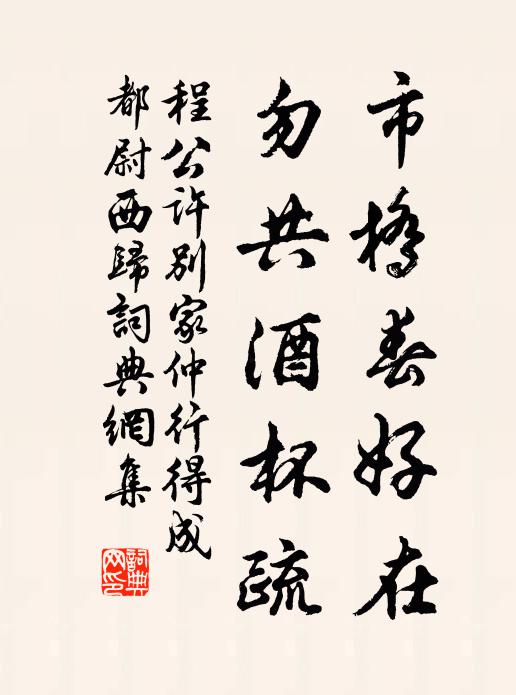 市橋春好在
勿共酒杯疏
程公許別家仲行得成
都尉西歸詞典網集
詞典網印